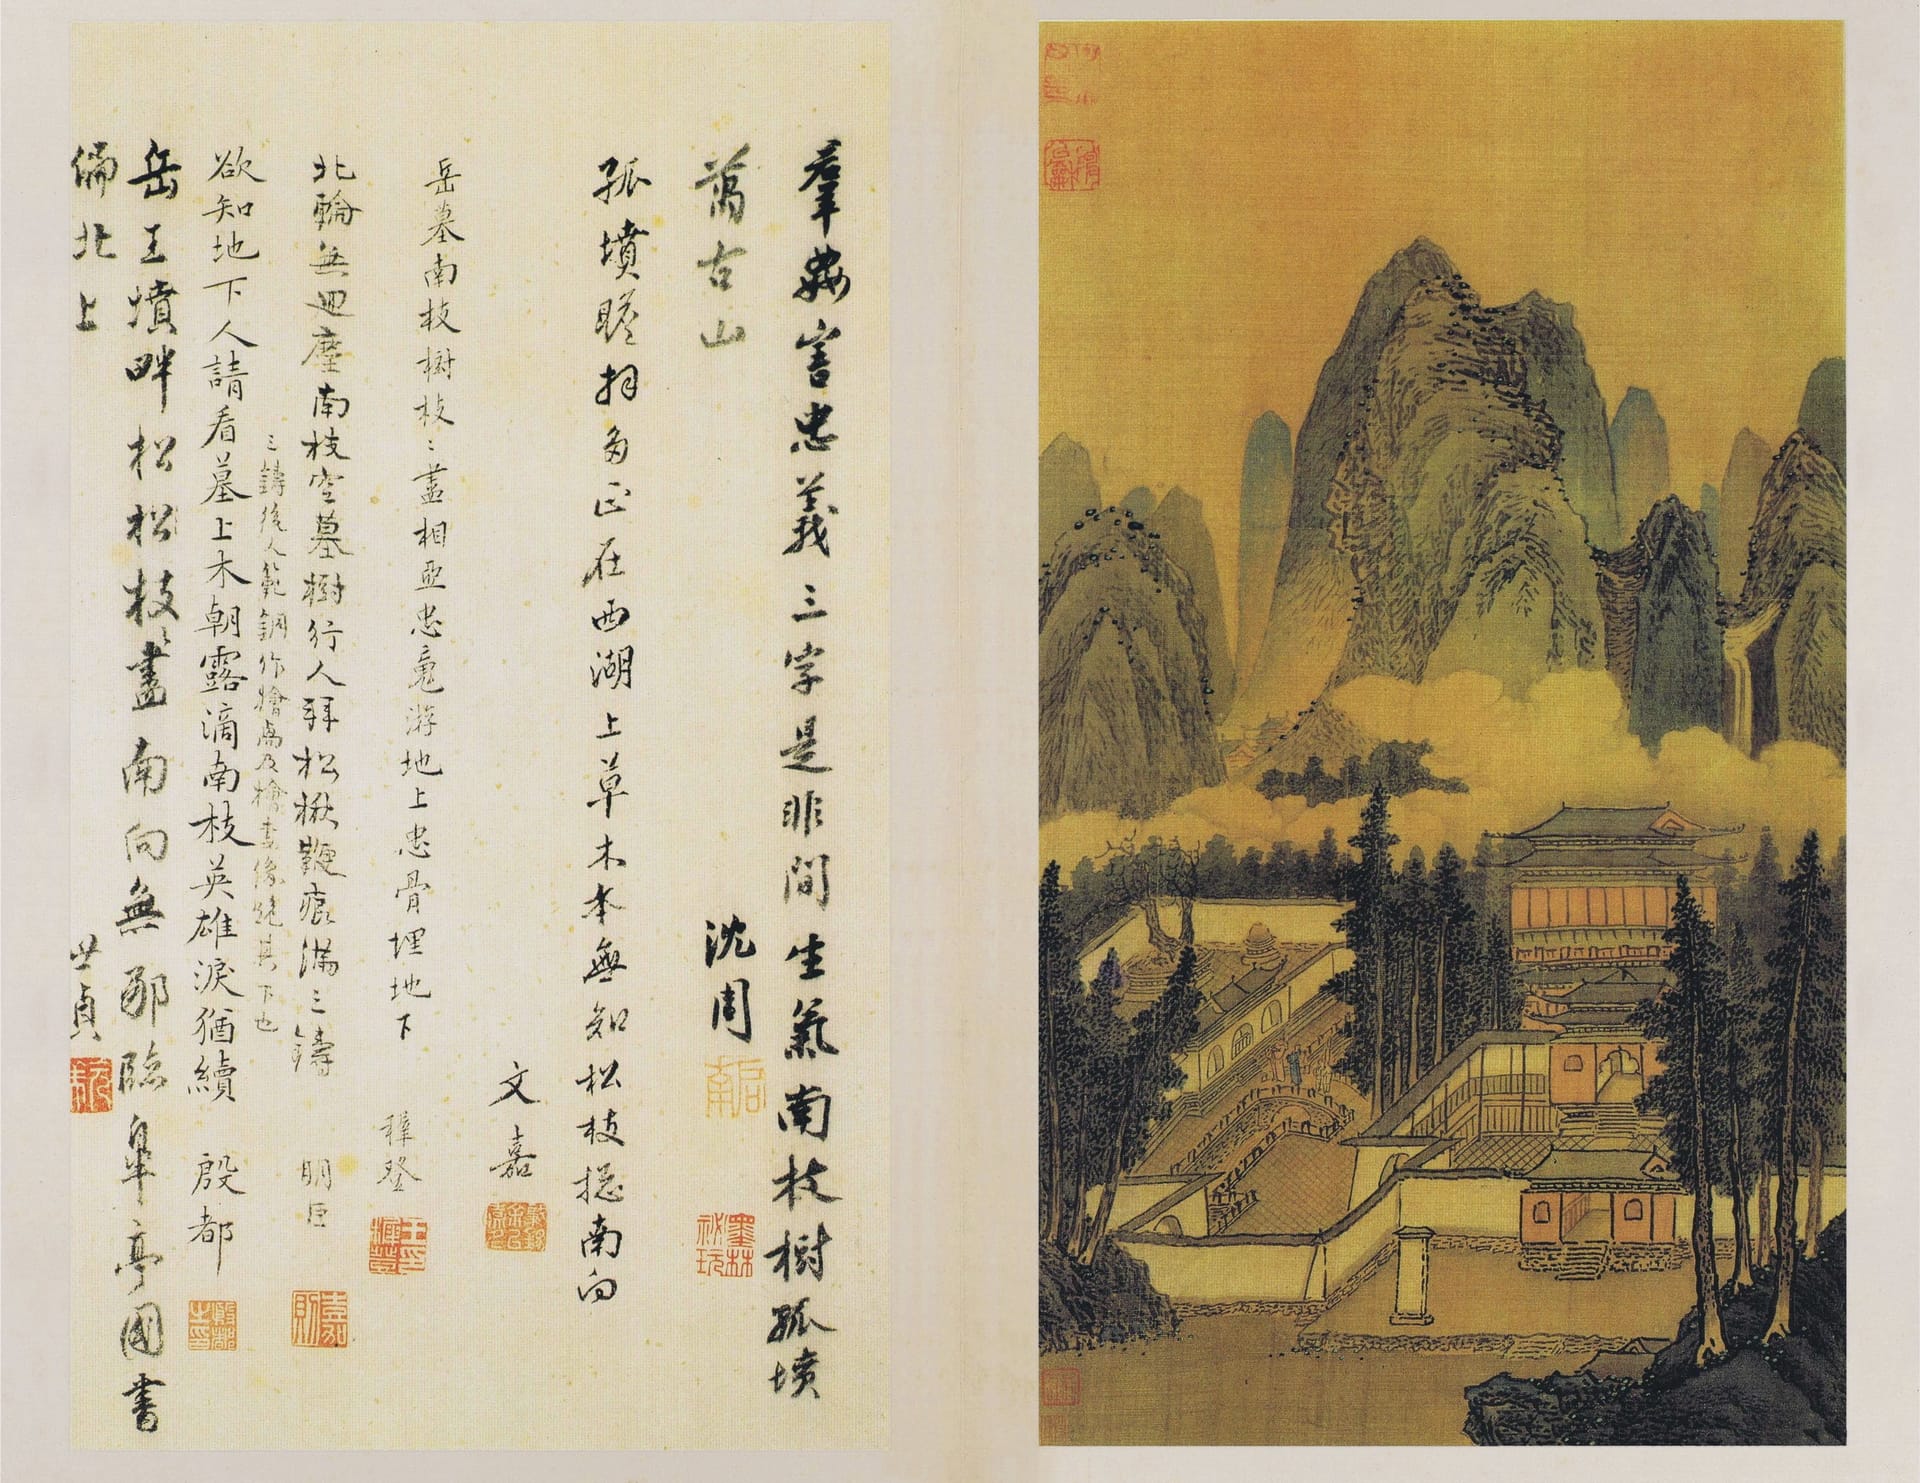 羣奸害忠義三字是非間生氣南枝樹孤墳
萬古山
沈周
墨林祕玩
孤墳瞻拜多正在西湖上草木本無知松枝總南向
文嘉
岳墓南枝樹枝〻盡相亞忠䰟游地上忠骨埋地下
穉登
北輪無迴塵南枝空墓樹行人拜松楸鞭痕滿三鑄
明臣
三鑄後人範銅作檜卨及檜妻像跪其下也
欲知地下人請看墓上木朝露滴南枝英雄淚猶續
殷都
殷都之印
岳王墳畔松松松枝盡南向無那臨皐亭圖書
偏北上
世貞